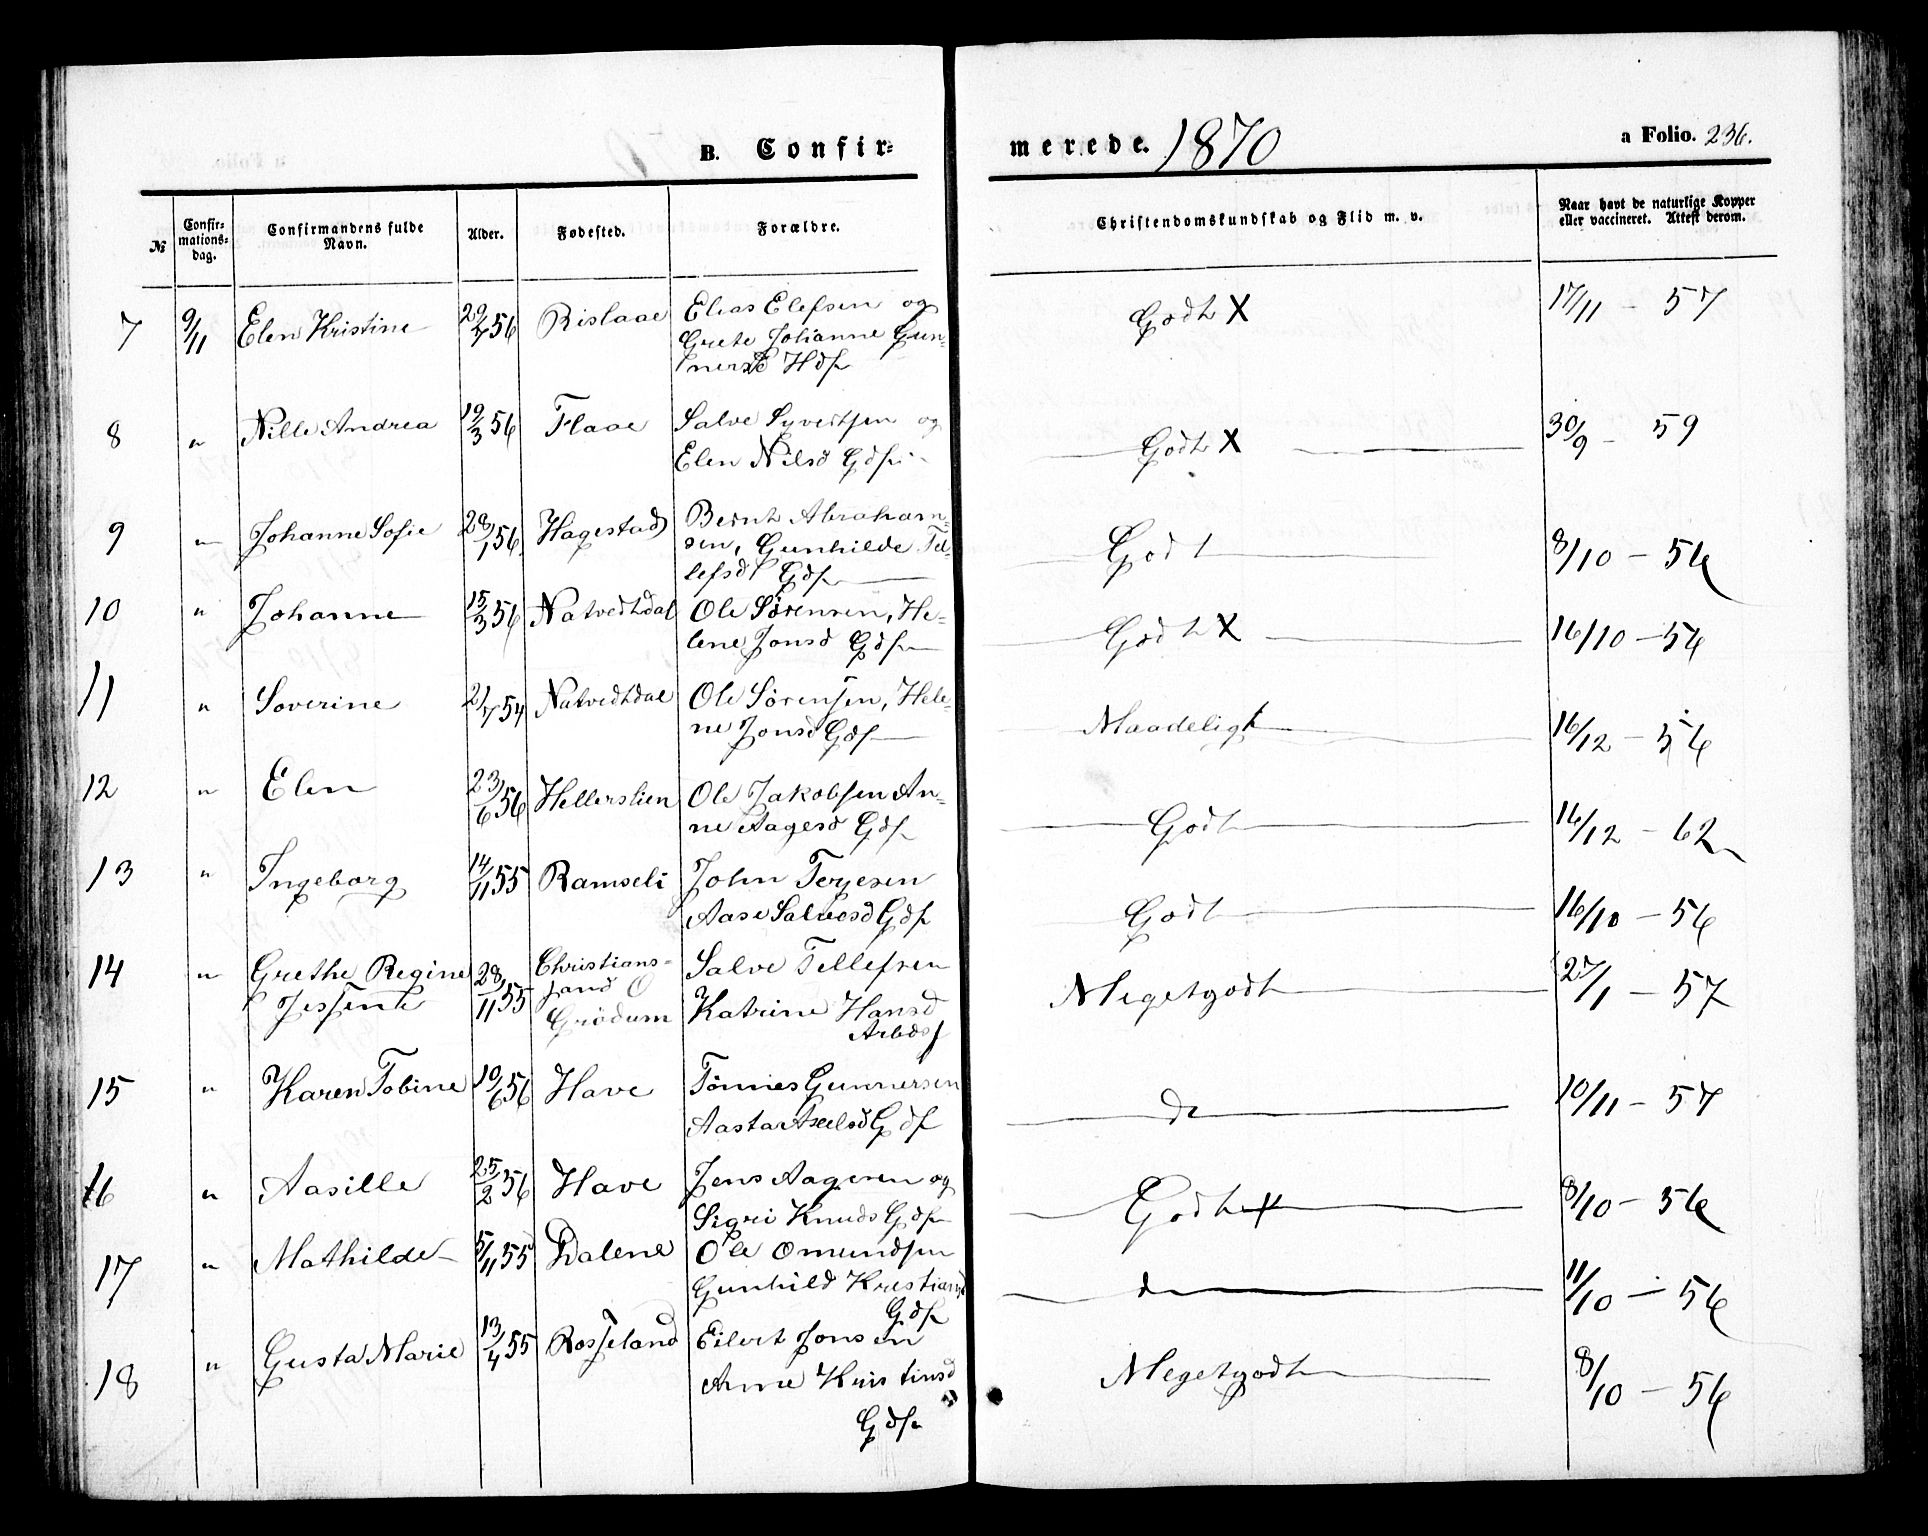 B. Confir-
merede. 1870
a Folio. 236.
№
Confir-
mations-
dag.
Confirmandens fulde
Navn.
Alder.
Fødested.
Forældre.
Christendomskundskab og Flid m. v.
Naar havt de naturlige Kopper
eller vaccineret. Attest derom.
7 9/11 Elen Kristine 56 Rislaae Elias Elefsen og Godt X 17/11 - 57
Grete Johanne Gun-
nersd
8 " Nille Andrea 19/3 56 Flaae Salve Syvertsen og Godt X 30/9 - 59
Elen Nilsd Gdf
9 " Johanne Sofie 28/1 56 Hagestad Bernt Abraham- Godt 8/10 - 56
sen, Gunhilde Tel-
lefsd Gdf
10 " Johanne 15/3 56 Natvedtdal Ole Sørensen, He- Godt X 16/10 - 56
lene Jonsd Gdf
11 " Soverine 2/7 54 Natvedtdal Ole Sørensen, Hele- Maadeligt 16/12 - 56
ne Jonsd Gdf
12 " Elen 23/6 56 Hellerslien Ole Jakobsen An- Godt 16/12 - 62
ne Aagesd Gdf
13 " Ingeborg 14/11 55 Ramseli John Terjesen Godt 16/10 - 56
Aase Salvesd Gdf
14 " Grethe Regine 28/11 55 Christians- Salve Tellefsen Megetgodt 27/1 - 57
Jessine sand Katrine Hansd
Grødum
15 " Karen Tobine 10/6 56 Have Tønnes Gunnersen do 10/11 - 57
Aasta Axelsd Gdf
16 " Aasille 25/2 56 Have Jens Aagesen og Godt X 8/10 - 56
Sigri Knuds Gdf
17 " Mathilde 5/11 55 Dalene Ole Omundsen do 11/10 - 56
Gunhild Kristiansd
Gdf
18 " Gusta Marie 13/4 55 Rosseland Eilert Jonsen Megetgodt 8/10 - 56
Anne Kristinsd
Gdf